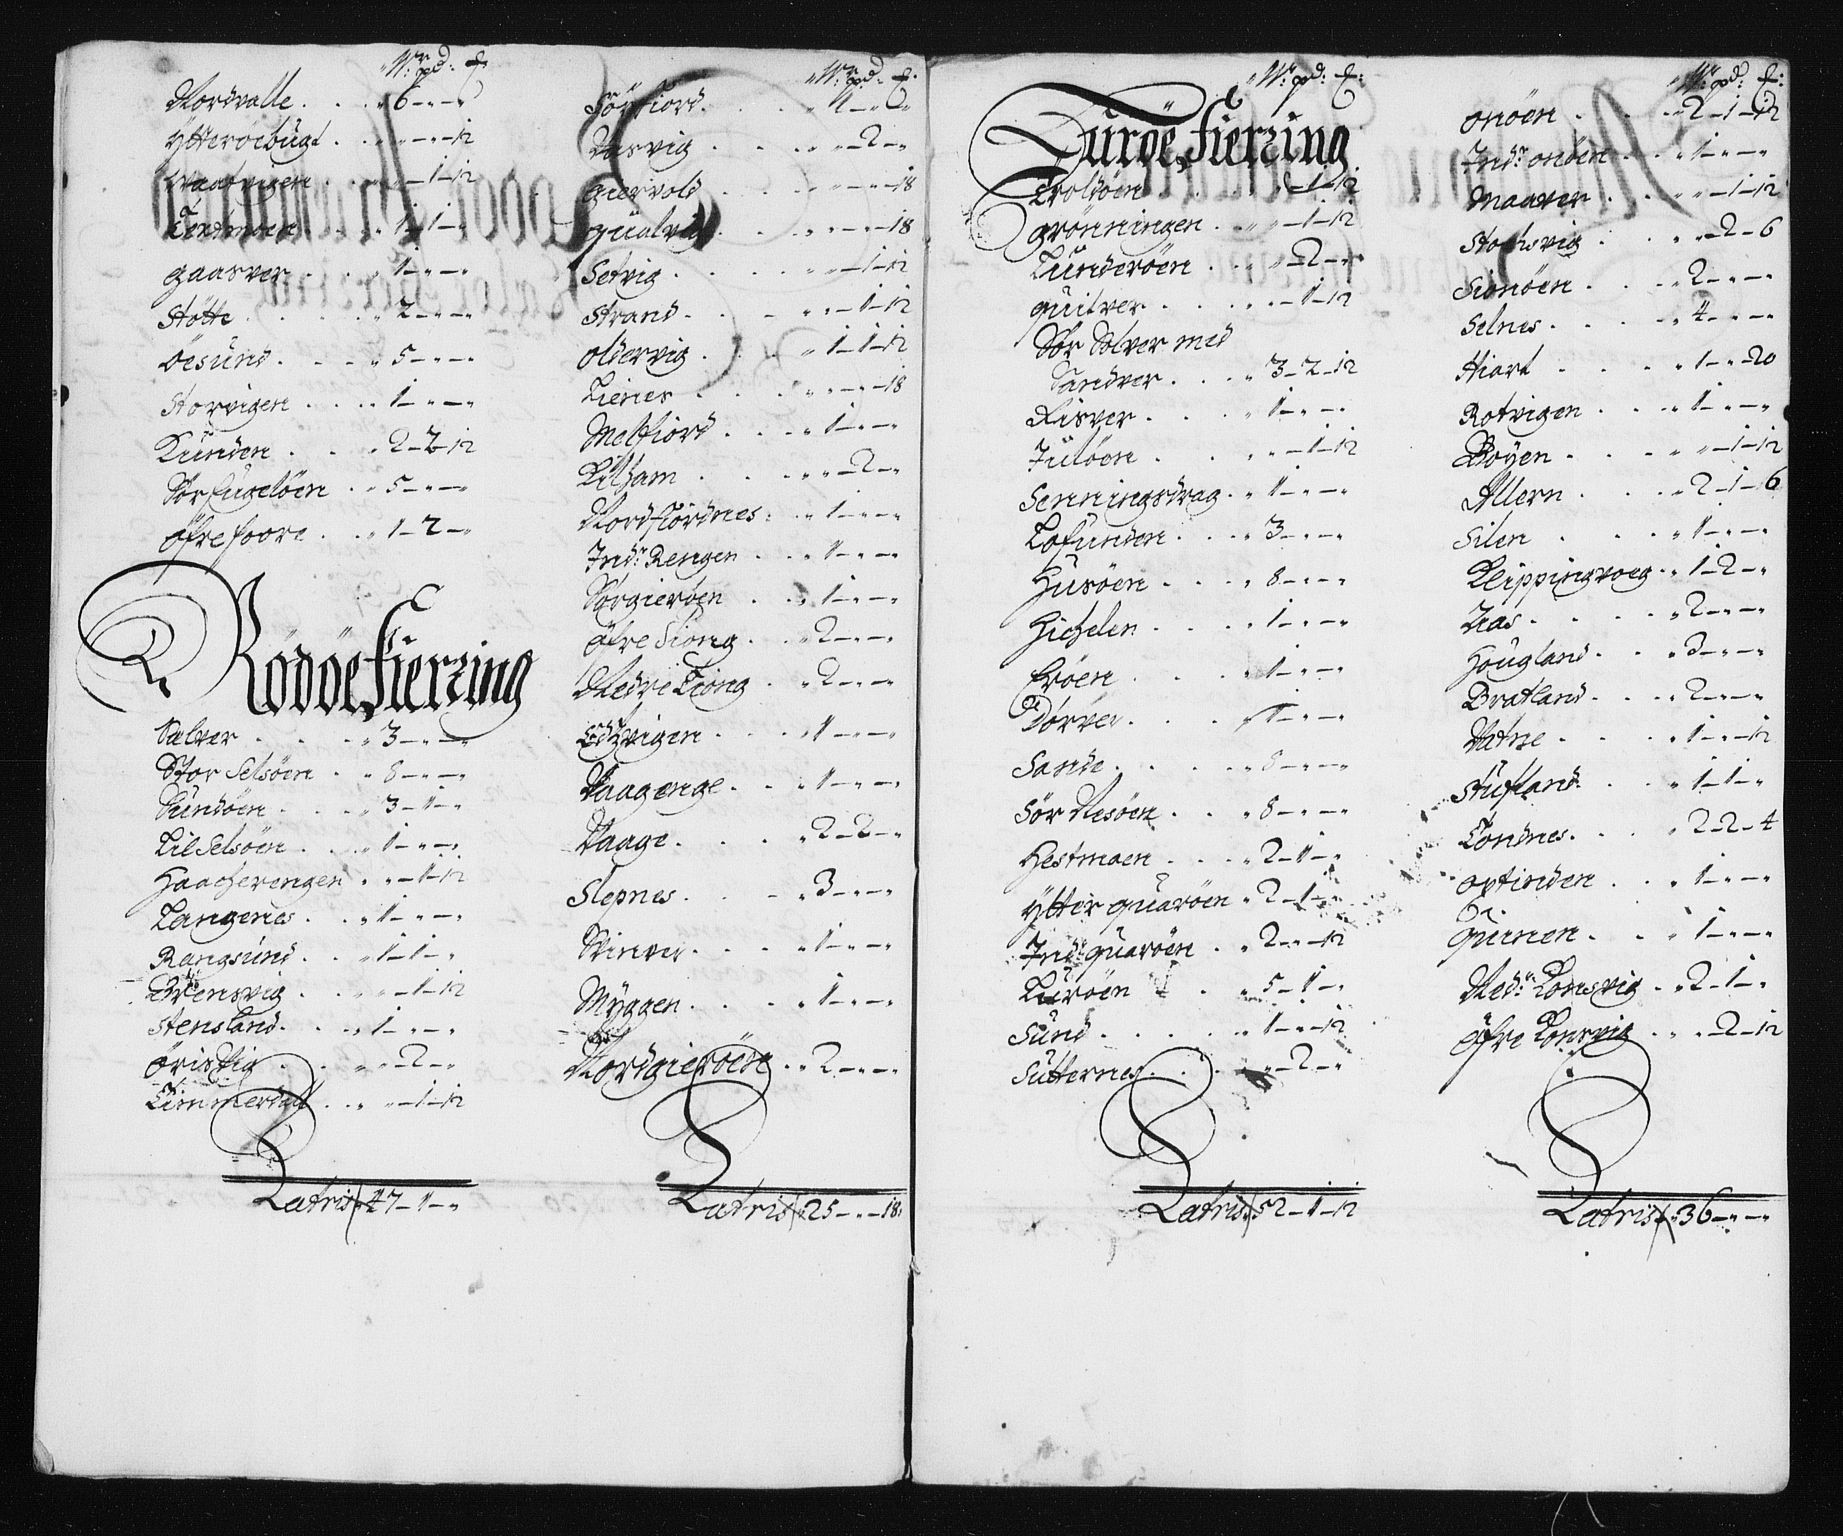 W: pd: £:
Nordvalle . . . „ 6 – „ – „
Ytterøebugt . . „ – „ – 12
Vaatvigen . . „ – 1 – 12
Tentmoen . . „ 1 – 1 – „
gaasver . . „ 1 – „ – „
Støtte . . . „ 2 – „ – „
Øesund . . . „ 5 – „ – „
Storvigen . . . „ 1 – „ – „
Kunden . . „ 2 – 2 – 12
Sør fugeløen . „ 5 – „ – „
Øfre foore . . „ 1 – 2 – „
Rödöe Fierring
Sælver . . . „ 3 – „ – „
Stor Selsöen . „ 8 – „ – „
Sundöen . . „ 3 – 1 – „
Lil Selsöen . . „ 1 – „ – „
Haacherengen . „ – 1 – 12
Langenes . . „ 1 – „ – „
Rangsund . . „ 1 – 1 – „
Brensvig . . „ – 1 – 12
Stensland . . „ 1 – „ – „
Ørisvig . . „ „ – 2 – „
Timmerdall . . „ „ – 1 – 12
Latris „ 47 – 1 – „
W: pd: £:
Sør fiord . . . „ 1 – „ – „
Aasvig . . . „ – 2 – „
giervold . . „ – „ – 18
gualvig . . „ – „ – 18
Setvig . . . „ – 1 – 12
Strand . . „ – 1 – 12
Oldervig . . „ 1 – 1 – 12
Lienes . . „ – „ – 18
Melfiord . . „ 1 – „ – „
Kilham . . „ „ – 2 – „
Nordfiordnes : „ 1 – „ – „
Indr Rengen . . „ 1 – „ – „
Sørgierøen . . „ 1 – „ – „
Øfre Tiong . . „ 2 – „ – „
Nedre Tiong . „ 2 – „ – „
Edtzvigen . . . „ 1 – „ – „
Vaagenge . . „ 1 – „ – „
Vaage . . . „ 2 – 2 – „
Slepnes . . . „ 3 – „ – „
Svinver . . . „ 1 – „ – „
Myggen . . . „ 1 – „ – „
Nordgierøen . . „ 2 – „ – „
Latris „ 25 – „ – 18
W: pd: £:
Luröe Fierring
Troldöen „ – 1 – 12
grønningen . „ „ – 1 – 12
Lunderöen . . „ – 2 – „
quitver . . . „ – 1 – 12
Sør Solver med
Sandver . . . „ 3 – 2 – 12
Risver . . . „ 1 – „ – „
Juløen . . . „ – 1 – 12
Senningsdrag . „ 1 – „ – „
Lofunden . . . „ 3 – „ – „
Husøen . . . „ 8 – „ – „
Hichelen . . . „ 1 – „ – „
Erøen . . . „ 1 – „ – „
Dørver . . . „ 1 – „ – „
Sande . . . „ 8 – „ – „
Sør Nesöen . . „ 8 – „ – „
Hestmaen . . . „ 2 – 1 – „
Ytter quarøen „ 2 – 1 – „
Indr quarøen . „ 2 – „ – 12
Lurøen . . „ 5 – 1 – „
Sund . . . . „ 1 – „ – 12
Sutternes . . . „ – 2 – „
Latris „ 52 – 1 – 12
W: pd: £:
Onöen . . . „ 2 – 1 – 12
Indr Onöen . . „ 1 – „ – „
Maaver . . „ „ – 1 – 12
Stochsvig . . „ „ – 2 – 6
Sionöen . . . „ 2 – „ – „
Selnes . . . . „ 4 – „ – „
Hiart . . . „ 1 – „ – 20
Rotvigen . . . „ 1 – „ – „
Böyen . . . „ „ – 1 – 12
Allern . . . „ 2 – 1 – 6
Silen . . . „ 1 – „ – „
Kleppingvoeg . . „ 1 – 2 – „
Aas . . . . „ 2 – „ – „
Hougland . . „ 3 – „ – „
Bratland . . . „ 2 – „ – „
Vatne . . . „ 1 – „ – 12
Stufland . . „ 1 – 1 – „
Tondnes . . . „ 2 – 2 – 4
Ortinden . . „ 1 – „ – „
quinen . . . „ 1 – „ – „
Nedr Konsvig . „ 2 – 1 – „
Øfre Konsvig . . „ – 2 – 12
Latris „ 36 – „ – „